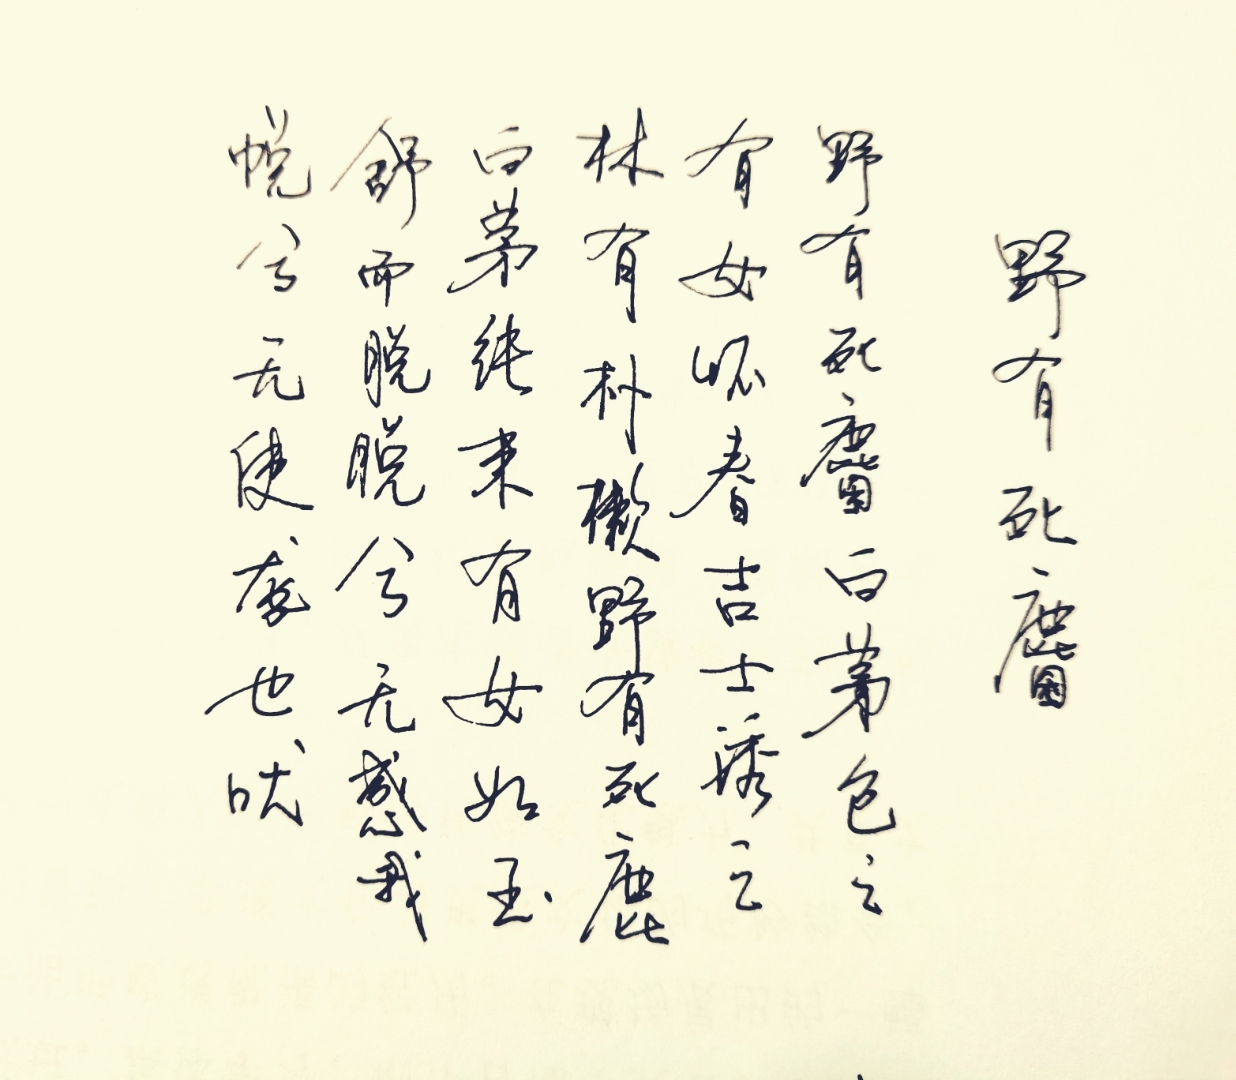 野有死麕
野有死麕白茅包之
有女怀春吉士诱之
林有朴樕野有死鹿
白茅纯束有女如玉
舒而脱脱兮无感我
帨兮无使尨也吠